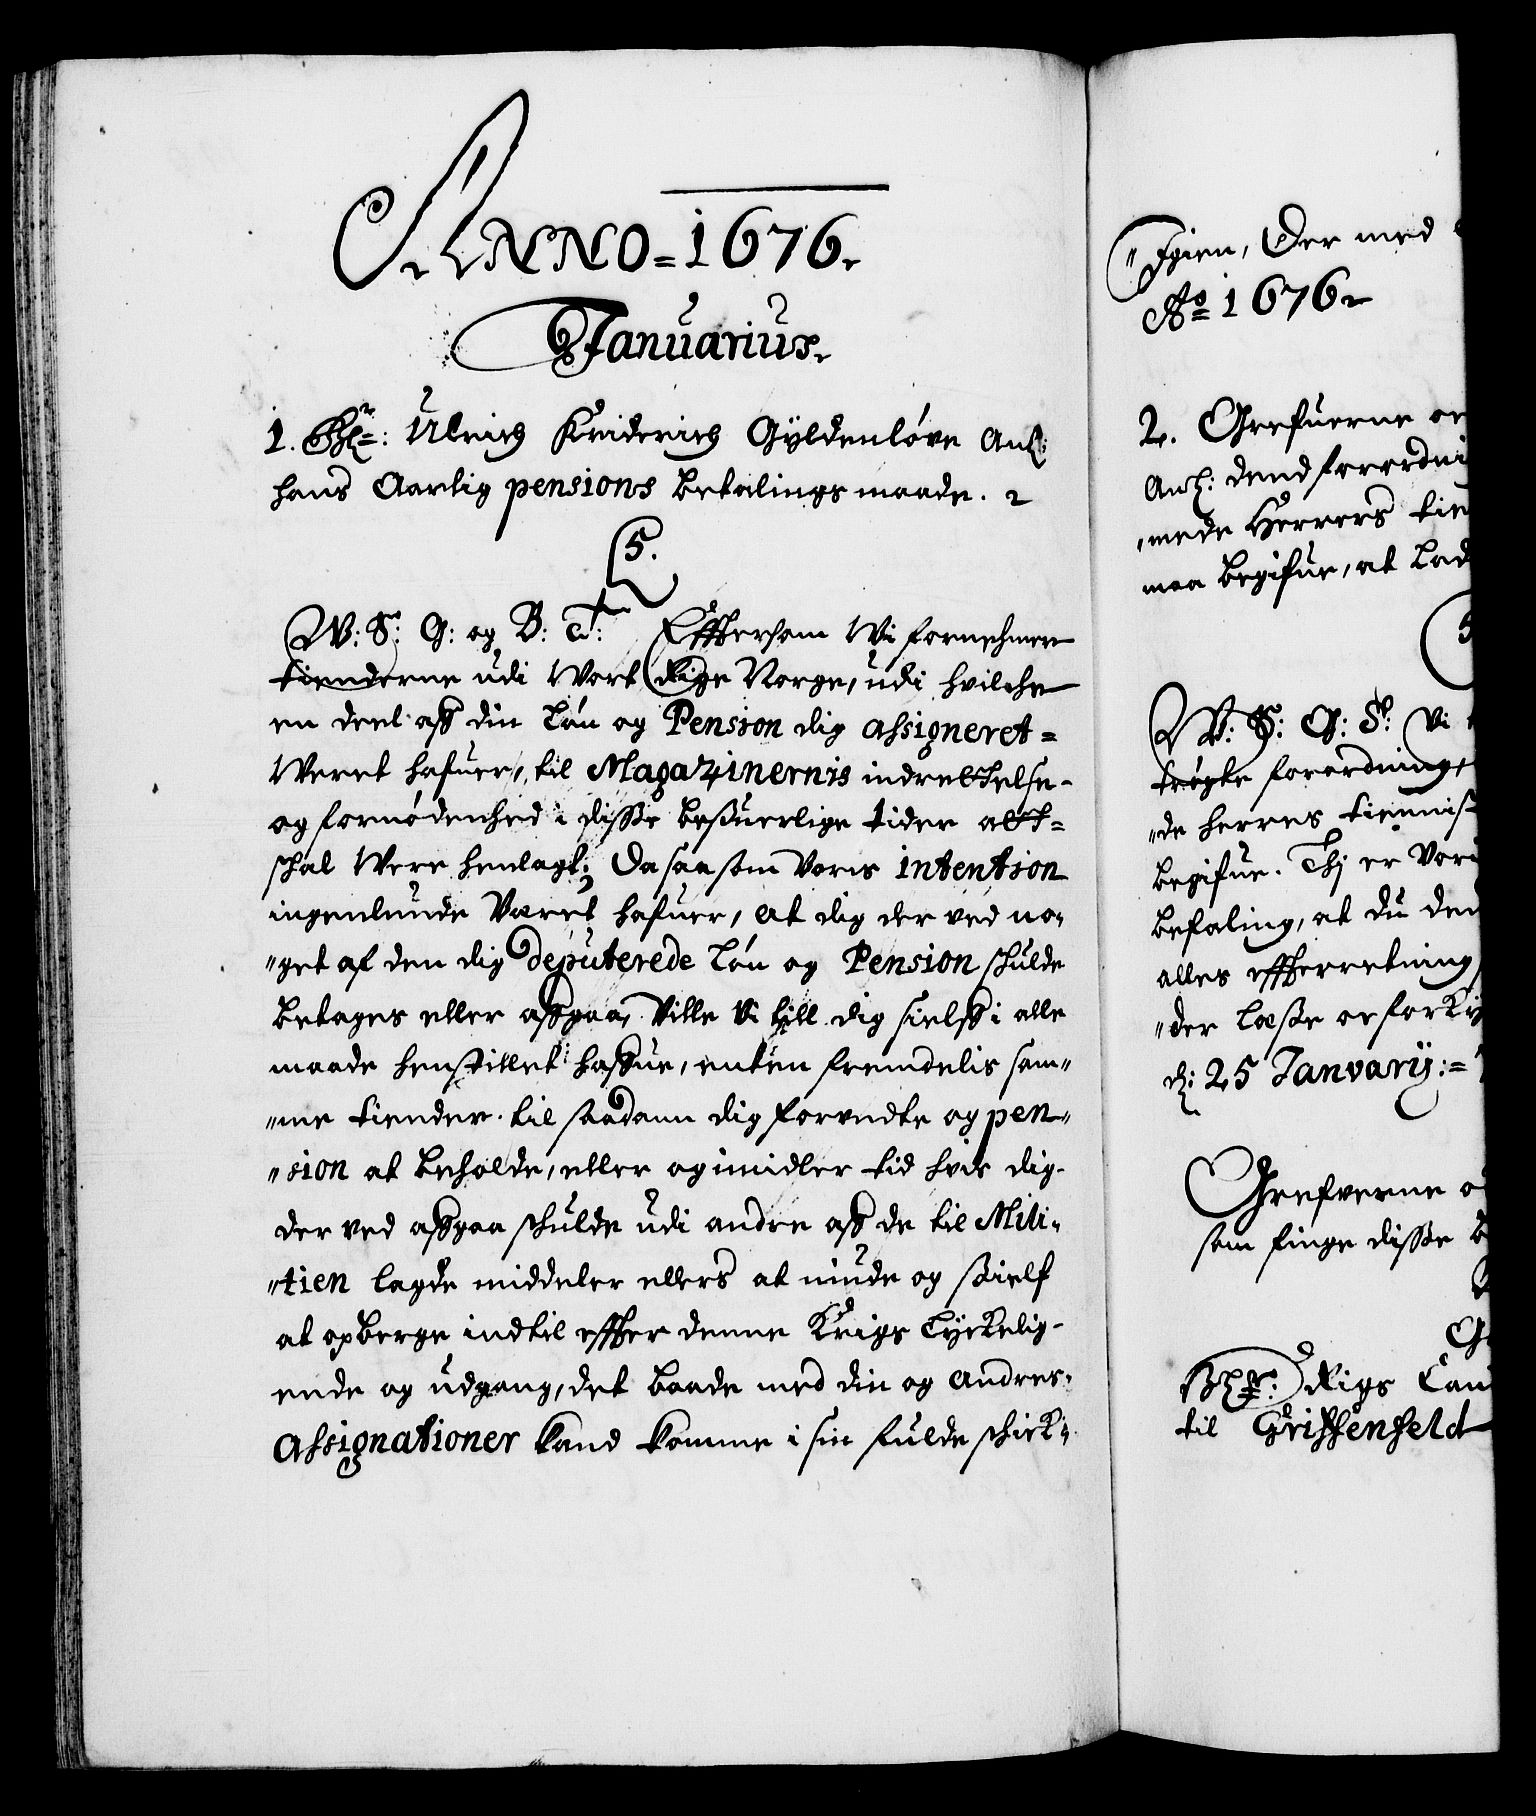 ANNO = 1676.
Januarius.
1. Hr: Ulrich Friderich Gÿldenløve Anl:
hans Aarlig pensions betalings maade.
5.
W: S: G: og B: T: Effthersom Wi fornehmer
tienderne udi Wort Rige Norge, udi hvilche
en deel aff din Løn og Pension dig assigneret =
Weret hafuer, til Magazinernis indrettelse
og fornødenhed i disse besuerlige tider alt =
schal Were henlagt; Da saasom Voris intention
ingenlunde Været hafuer, at dig der ved no-
"get af den dig deputerede Løn og Pension schulde
betages eller affgaa, Ville Vi till dig sielff i alle
maade henstillet haffue, enten fremdelis sam"
"me tiender til saadann dig forundte og pen"
"sion at beholde, eller og imidler tid hvis dig
der ved affgaa schulde udi andre aff de til Mili"
"tien lagde middeler ellers at niude og sielf
at opberge indtil effther denne Krigs Lyckelig
ende og udgang, det baade med din og andres
Assignationer kand komme i sin fulde schick"
"Igien, Der med
Ao 1676
2. Grefuerne
Anl: dend forordni
"mede Herrers tie
maa begifue, at lad
W: S: G: S: Vi
trögte forordning,
"de herres tiennist
begifue. Thj er Vor
befaling, at du den
alles effterretning
"der læse oc forKy
d: 25 Janvarij: =
Grefverne
som finge disse
Rigs Can
til Griffenfeld